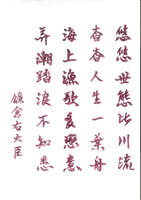 悠悠世態比川流
杳杳人生一葉舟
海上漁歌意
弄潮踏浪不知愁
鎌倉右大臣